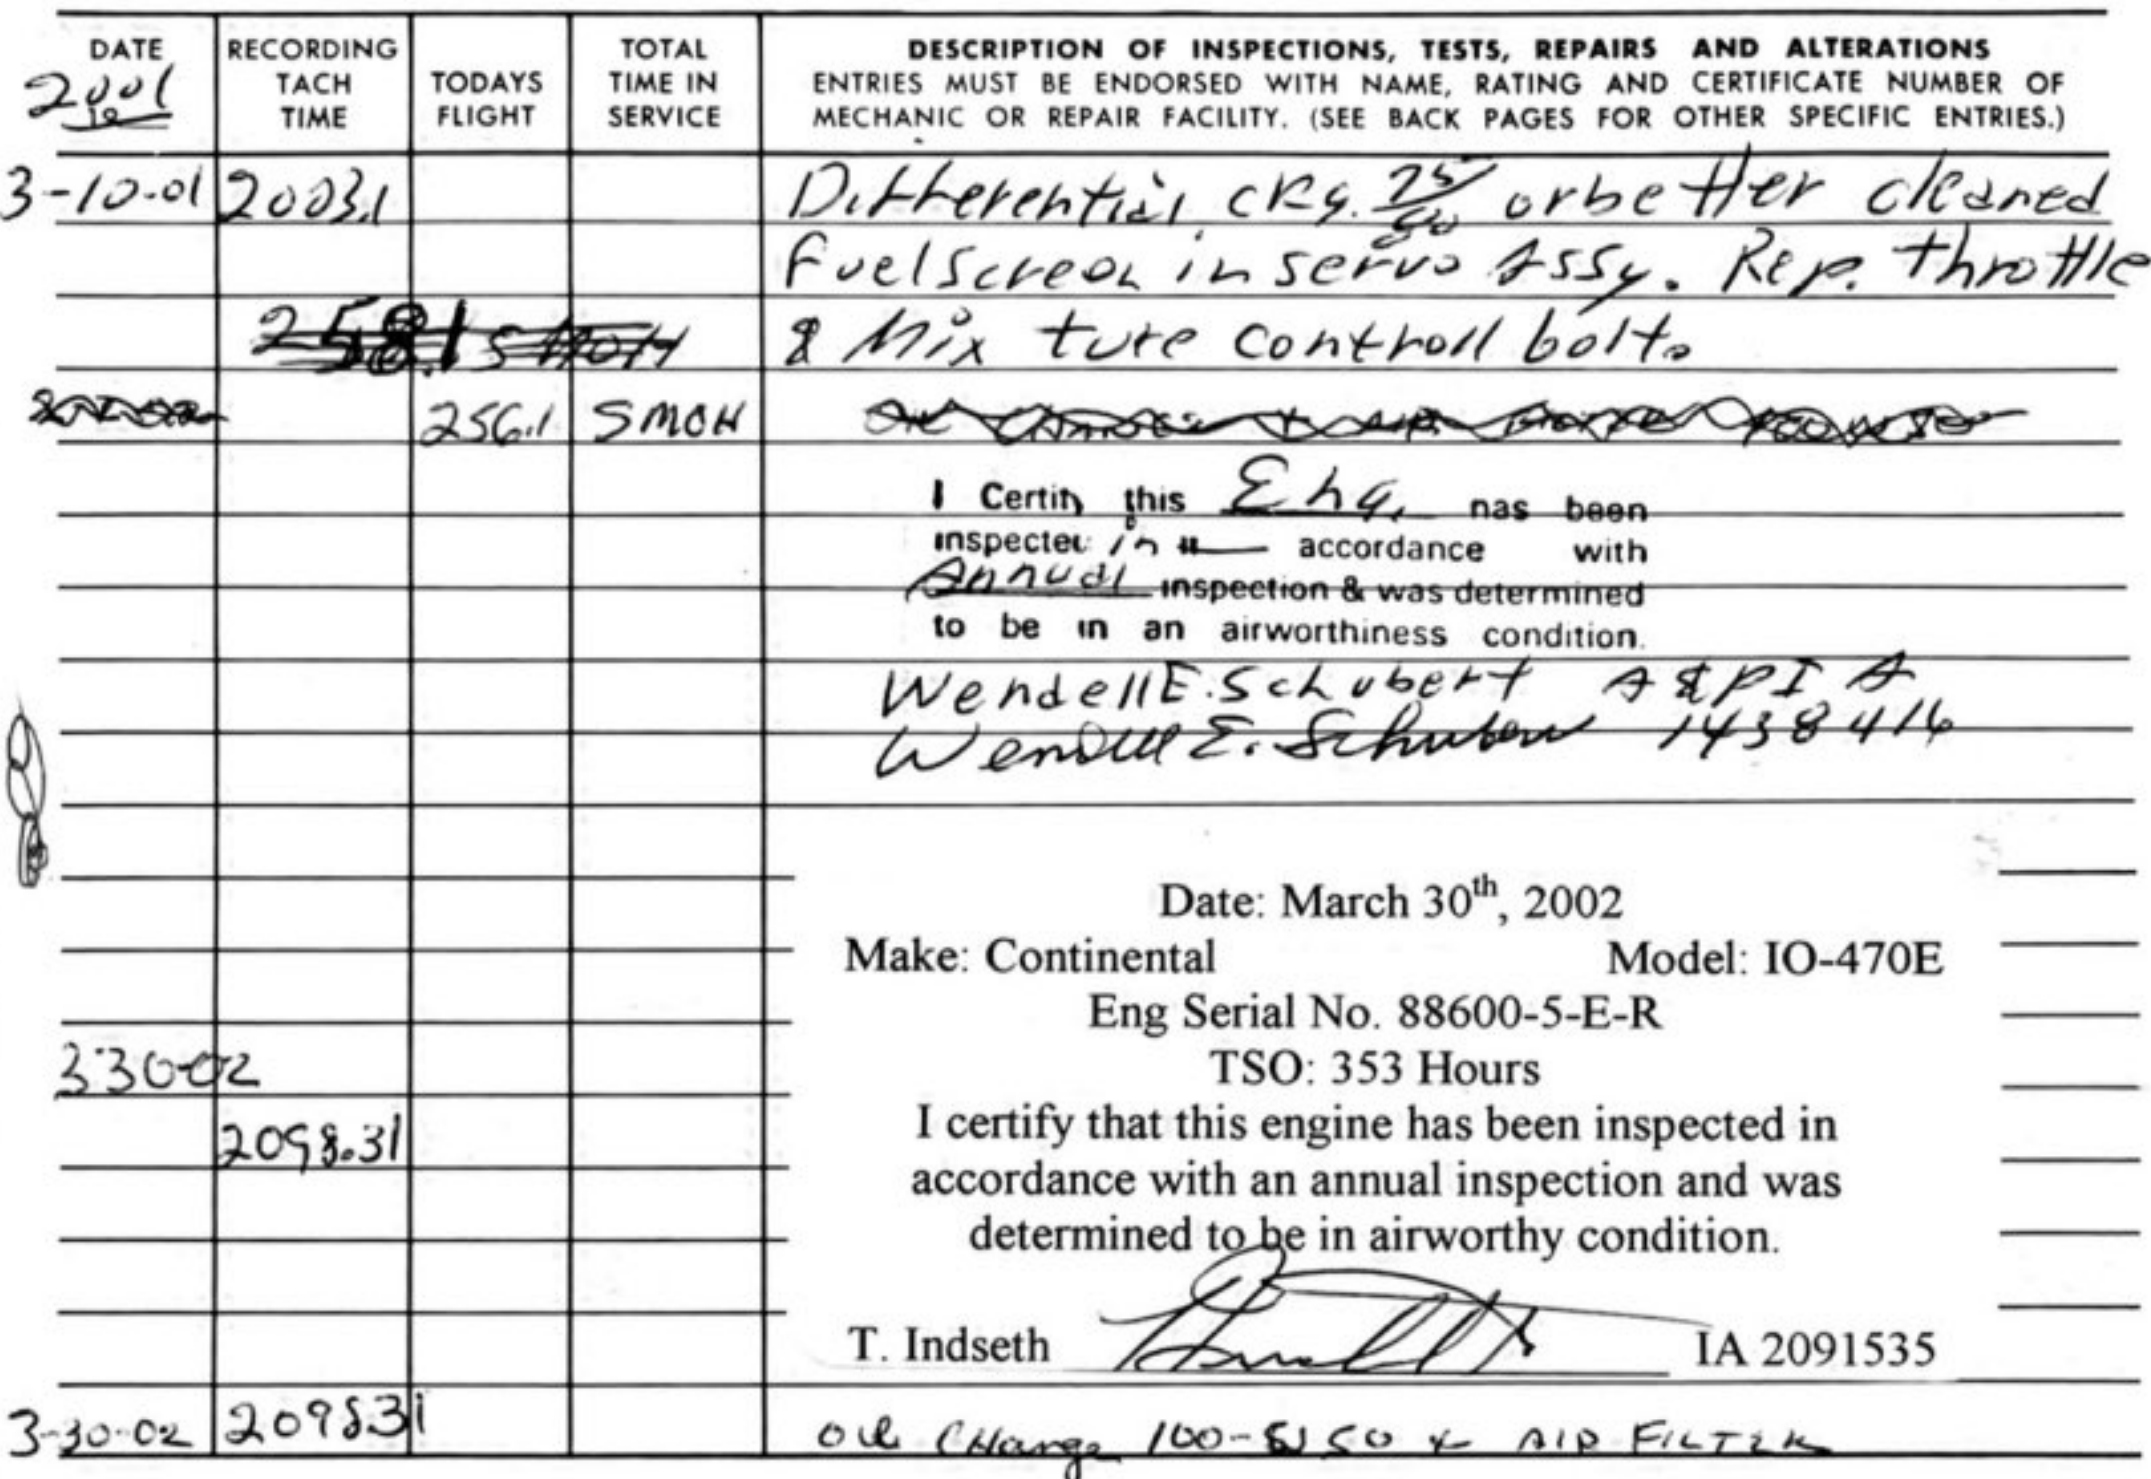 DATE RECORDING TACH TIME TODAYS FLIGHT TOTAL TIME IN SERVICE DESCRIPTION OF INSPECTIONS, TESTS, REPAIRS AND ALTERATIONS
ENTRIES MUST BE ENDORSED WITH NAME, RATING AND CERTIFICATE NUMBER OF
MECHANIC OR REPAIR FACILITY. (SEE BACK PAGES FOR OTHER SPECIFIC ENTRIES.)
2001
3-10-01 2003.1 Differential cks. 75/80 or better cleaned
Fuel Screen in servo Assy. Rep. throttle
258.1 SMOH & Mixture controll bolts
256.1 SMOH
I Certify this Eng. has been
inspected in accordance with
Annual inspection & was determined
to be in an airworthiness condition.
Wendell E. Schubert A&P I A
Wendell E. Schubert 1438416
Date: March 30th, 2002
Make: Continental Model: IO-470E
Eng Serial No. 88600-5-E-R
3-30-02 TSO: 353 Hours
2098.31 I certify that this engine has been inspected in
accordance with an annual inspection and was
determined to be in airworthy condition.
T. Indseth IA 2091535
3-30-02 2098.31 oil change 100- & AIR FILTER